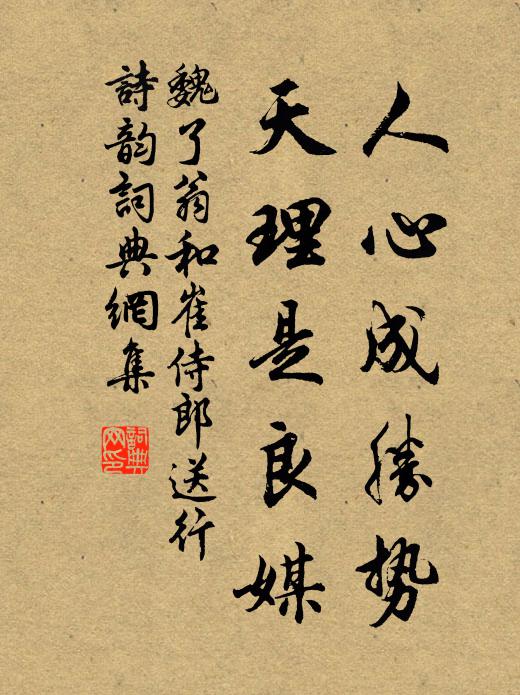 人心成勝势
天理是良媒
魏了翁和崔侍郎送行
詩韵詞典網集
詞典
网印